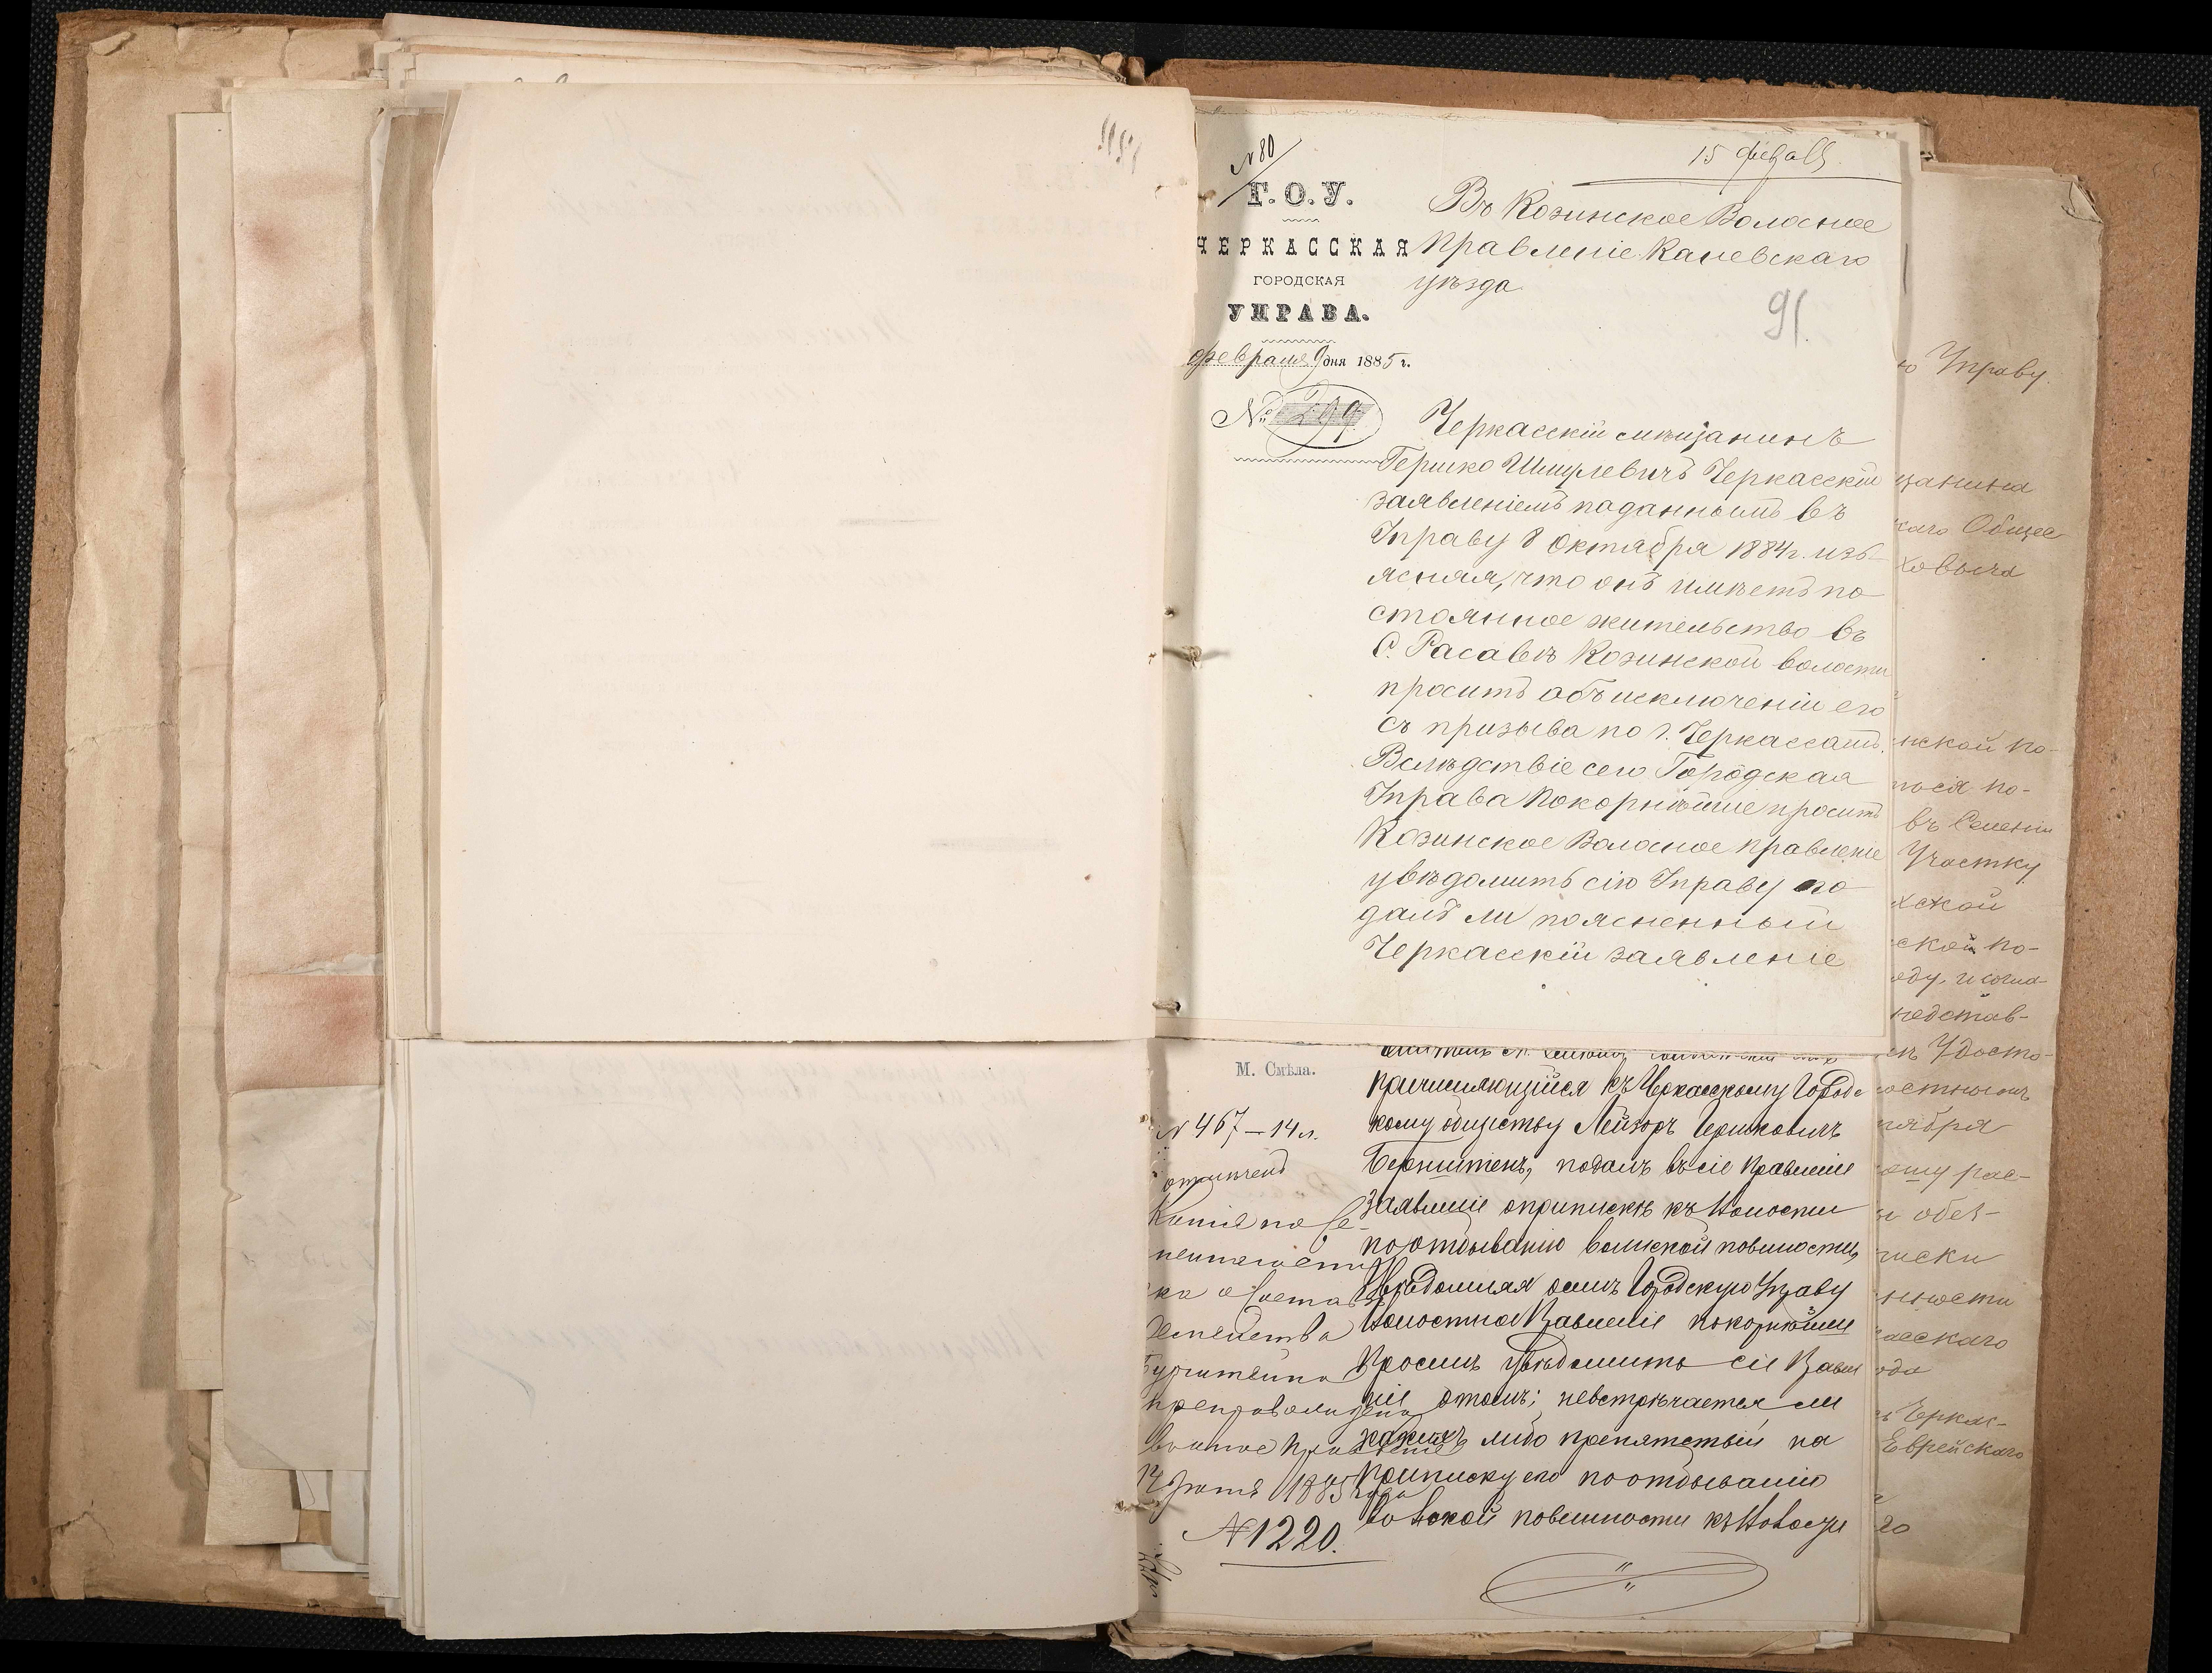 № 80
15 февр 85
Г.О.У.
ЧЕРКАССКАЯ
ГОРОДСКАЯ
УПРАВА.
февраля 9 дня 1885 г.
№ 299
Въ Козинское Волосное
Правленіе Каневскаго
уѣзда
91
Черкасскій мѣщанинъ
Гершко Шмулевичъ Черкасскій
заявленіемъ паданнымъ въ
Управу 8 Октября 1884 г. изъ-
ясняя, что онъ имѣетъ по
стоянное жительство въ
С. Расавѣ Козинской волости
проситъ объ исключеніи его
съ призыва по г. Черкассамъ.
Вслѣдствіе сего Городская
Управа покорнѣйше проситъ
Козинское Волосное правленіе
увѣдомить сію Управу по
далъ ли поясненный
Черкасскій заявленіе
М. Смѣла.
№ 467 — 14 л.
Копія по Се-
семейства
препровождена
1885 года
№ 1220.
причисляющійся къ Черкасскому Городс
кому обществу Лейзоръ Гершковичъ
Бернштенъ, подалъ въ сіе Правленіе
Заявленіе о припискѣ къ Волости
по отбыванію воинской повинности,
Увѣдомляя о семъ Городскую Управу
Волостное Правленіе покорнѣйше
проситъ увѣдомить сіе Правле
ніе о томъ; невстрѣчается ли
какихъ либо препятствій на
приписку его по отбыванію
воинской повинности къ Волости
ю Управу.
щанина
каго Общес
ховича
нской по-
лося по-
въ Селеніи
Участку
ской по-
оду, и согла-
редстав-
Удосто-
остнымъ
тября
ому рас-
обез-
писки
нности
асскаго
ода
Черкас-
Еврейскаго